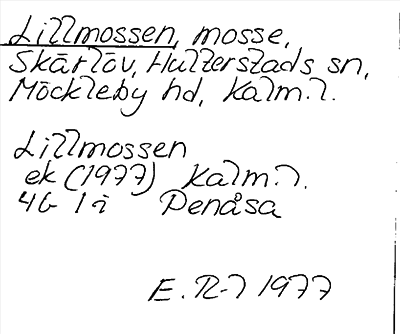 Lillmossen, mosse,
Skärlöv, Hulterstads sn,
Möckleby hd, Kalm.l.
Lillmossen
ek (1977) Kalm.l.
4G 1i Penåsa
E. R-l 1977